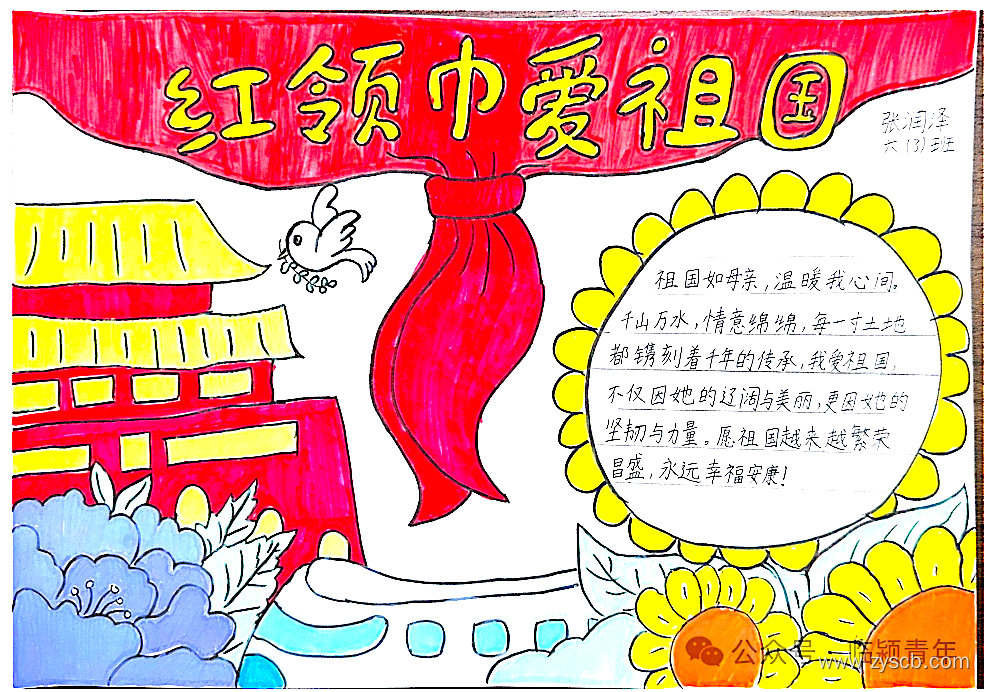 红领巾爱祖国
张润泽
六(3)班
祖国如母亲,温暖我心间。
千山万水,情意绵绵,每一寸土地
都镌刻着千年的传承,我爱祖国,
不仅因她的辽阔与美丽,更因她的
坚韧与力量。愿祖国越来越繁荣
昌盛,永远幸福安康!
公众号·临颍青年
www.zyscb.com